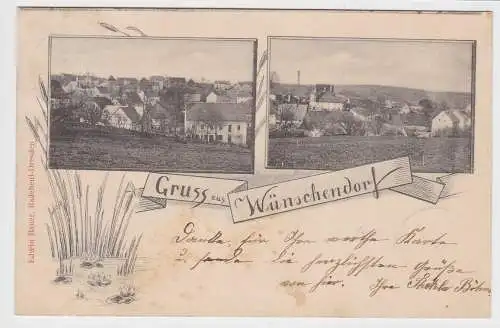 Gruss aus Wünschendorf
Danke für Ihre werthe Karte
u. sende die herzlichsten Grüße
von hier. Ihre
Edwin Bauer, Radebeul-Dresden